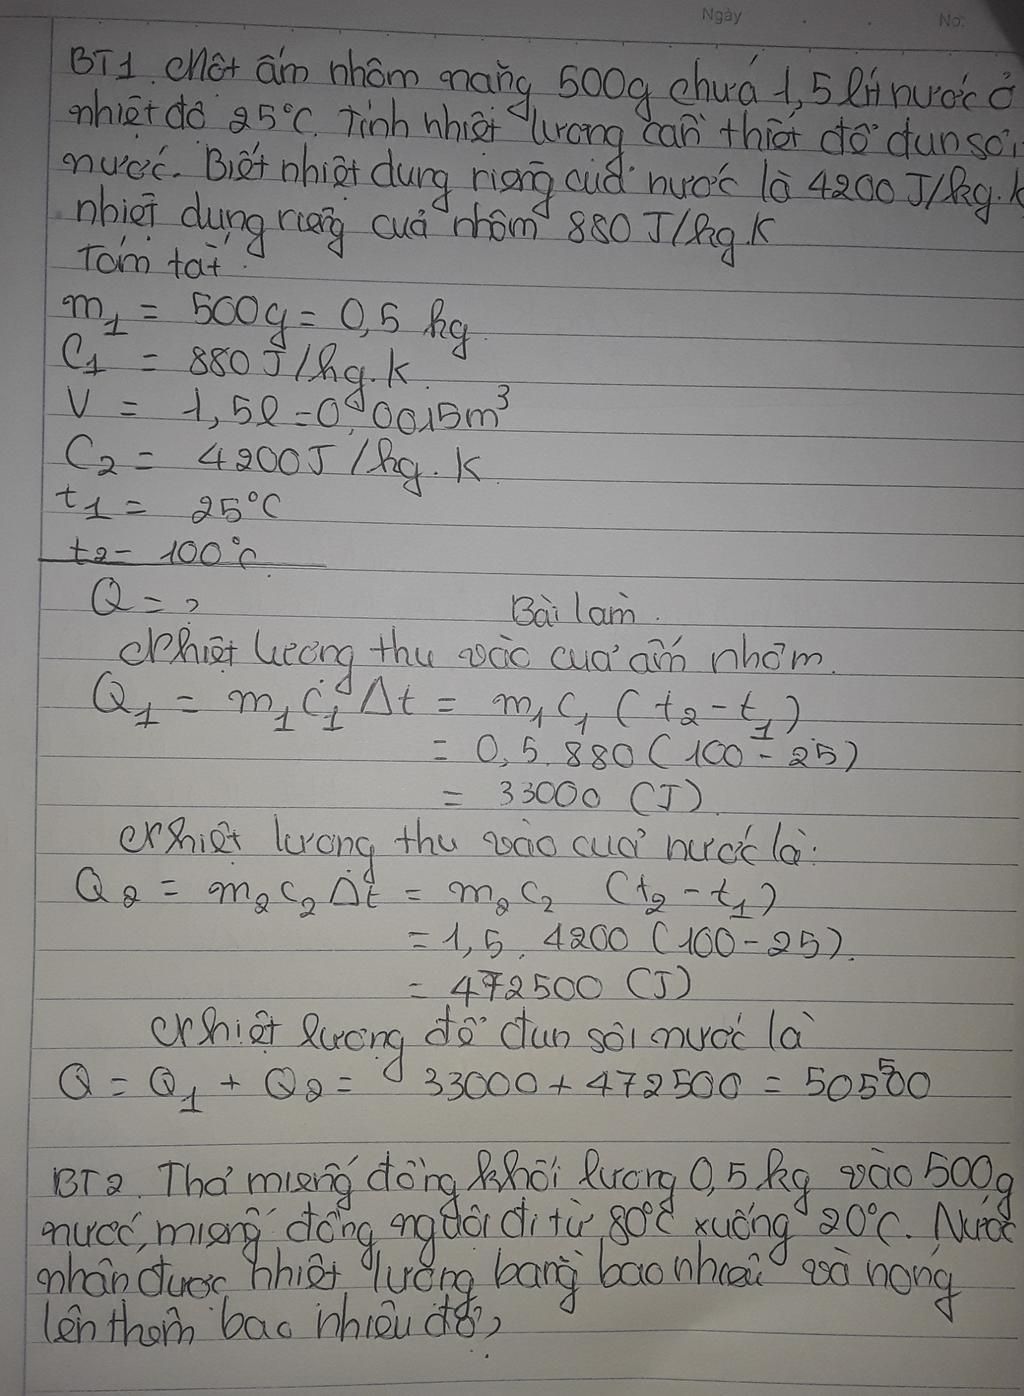 Ngày No:
BT1. Một ấm nhôm nặng 500g chứa 1,5 lít nước ở
nhiệt độ 25°C. Tính nhiệt lượng cần thiết để đun sôi
nước. Biết nhiệt dung riêng của nước là 4200 J/kg.K
nhiệt dung riêng của nhôm 880 J/kg.K
Tóm tắt.
m1 = 500g = 0,5 kg
C1 = 880 J/kg.K.
V = 1,5l = 0,0015m³
C2 = 4200J/kg.K
t1 = 25°C
t2 = 100°C
Q = ?
Bài làm.
Nhiệt lượng thu vào của ấm nhôm.
Q1 = m1C1Δt = m1C1 (t2 - t1)
= 0,5.880(100 - 25)
= 33000 (J)
Nhiệt lượng thu vào của nước là:
Q2 = m2C2Δt = m2C2 (t2 - t1)
= 1,5. 4200 (100 - 25).
= 472500 (J)
Nhiệt lượng để đun sôi nước là
Q = Q1 + Q2 = 33000 + 472500 = 505500
BT2. Thả miếng đồng khối lượng 0,5 kg vào 500g
nước, miếng đồng nguội đi từ 80°C xuống 20°C. Nước
nhận được nhiệt lượng bằng bao nhiêu và nóng
lên thêm bao nhiêu độ?